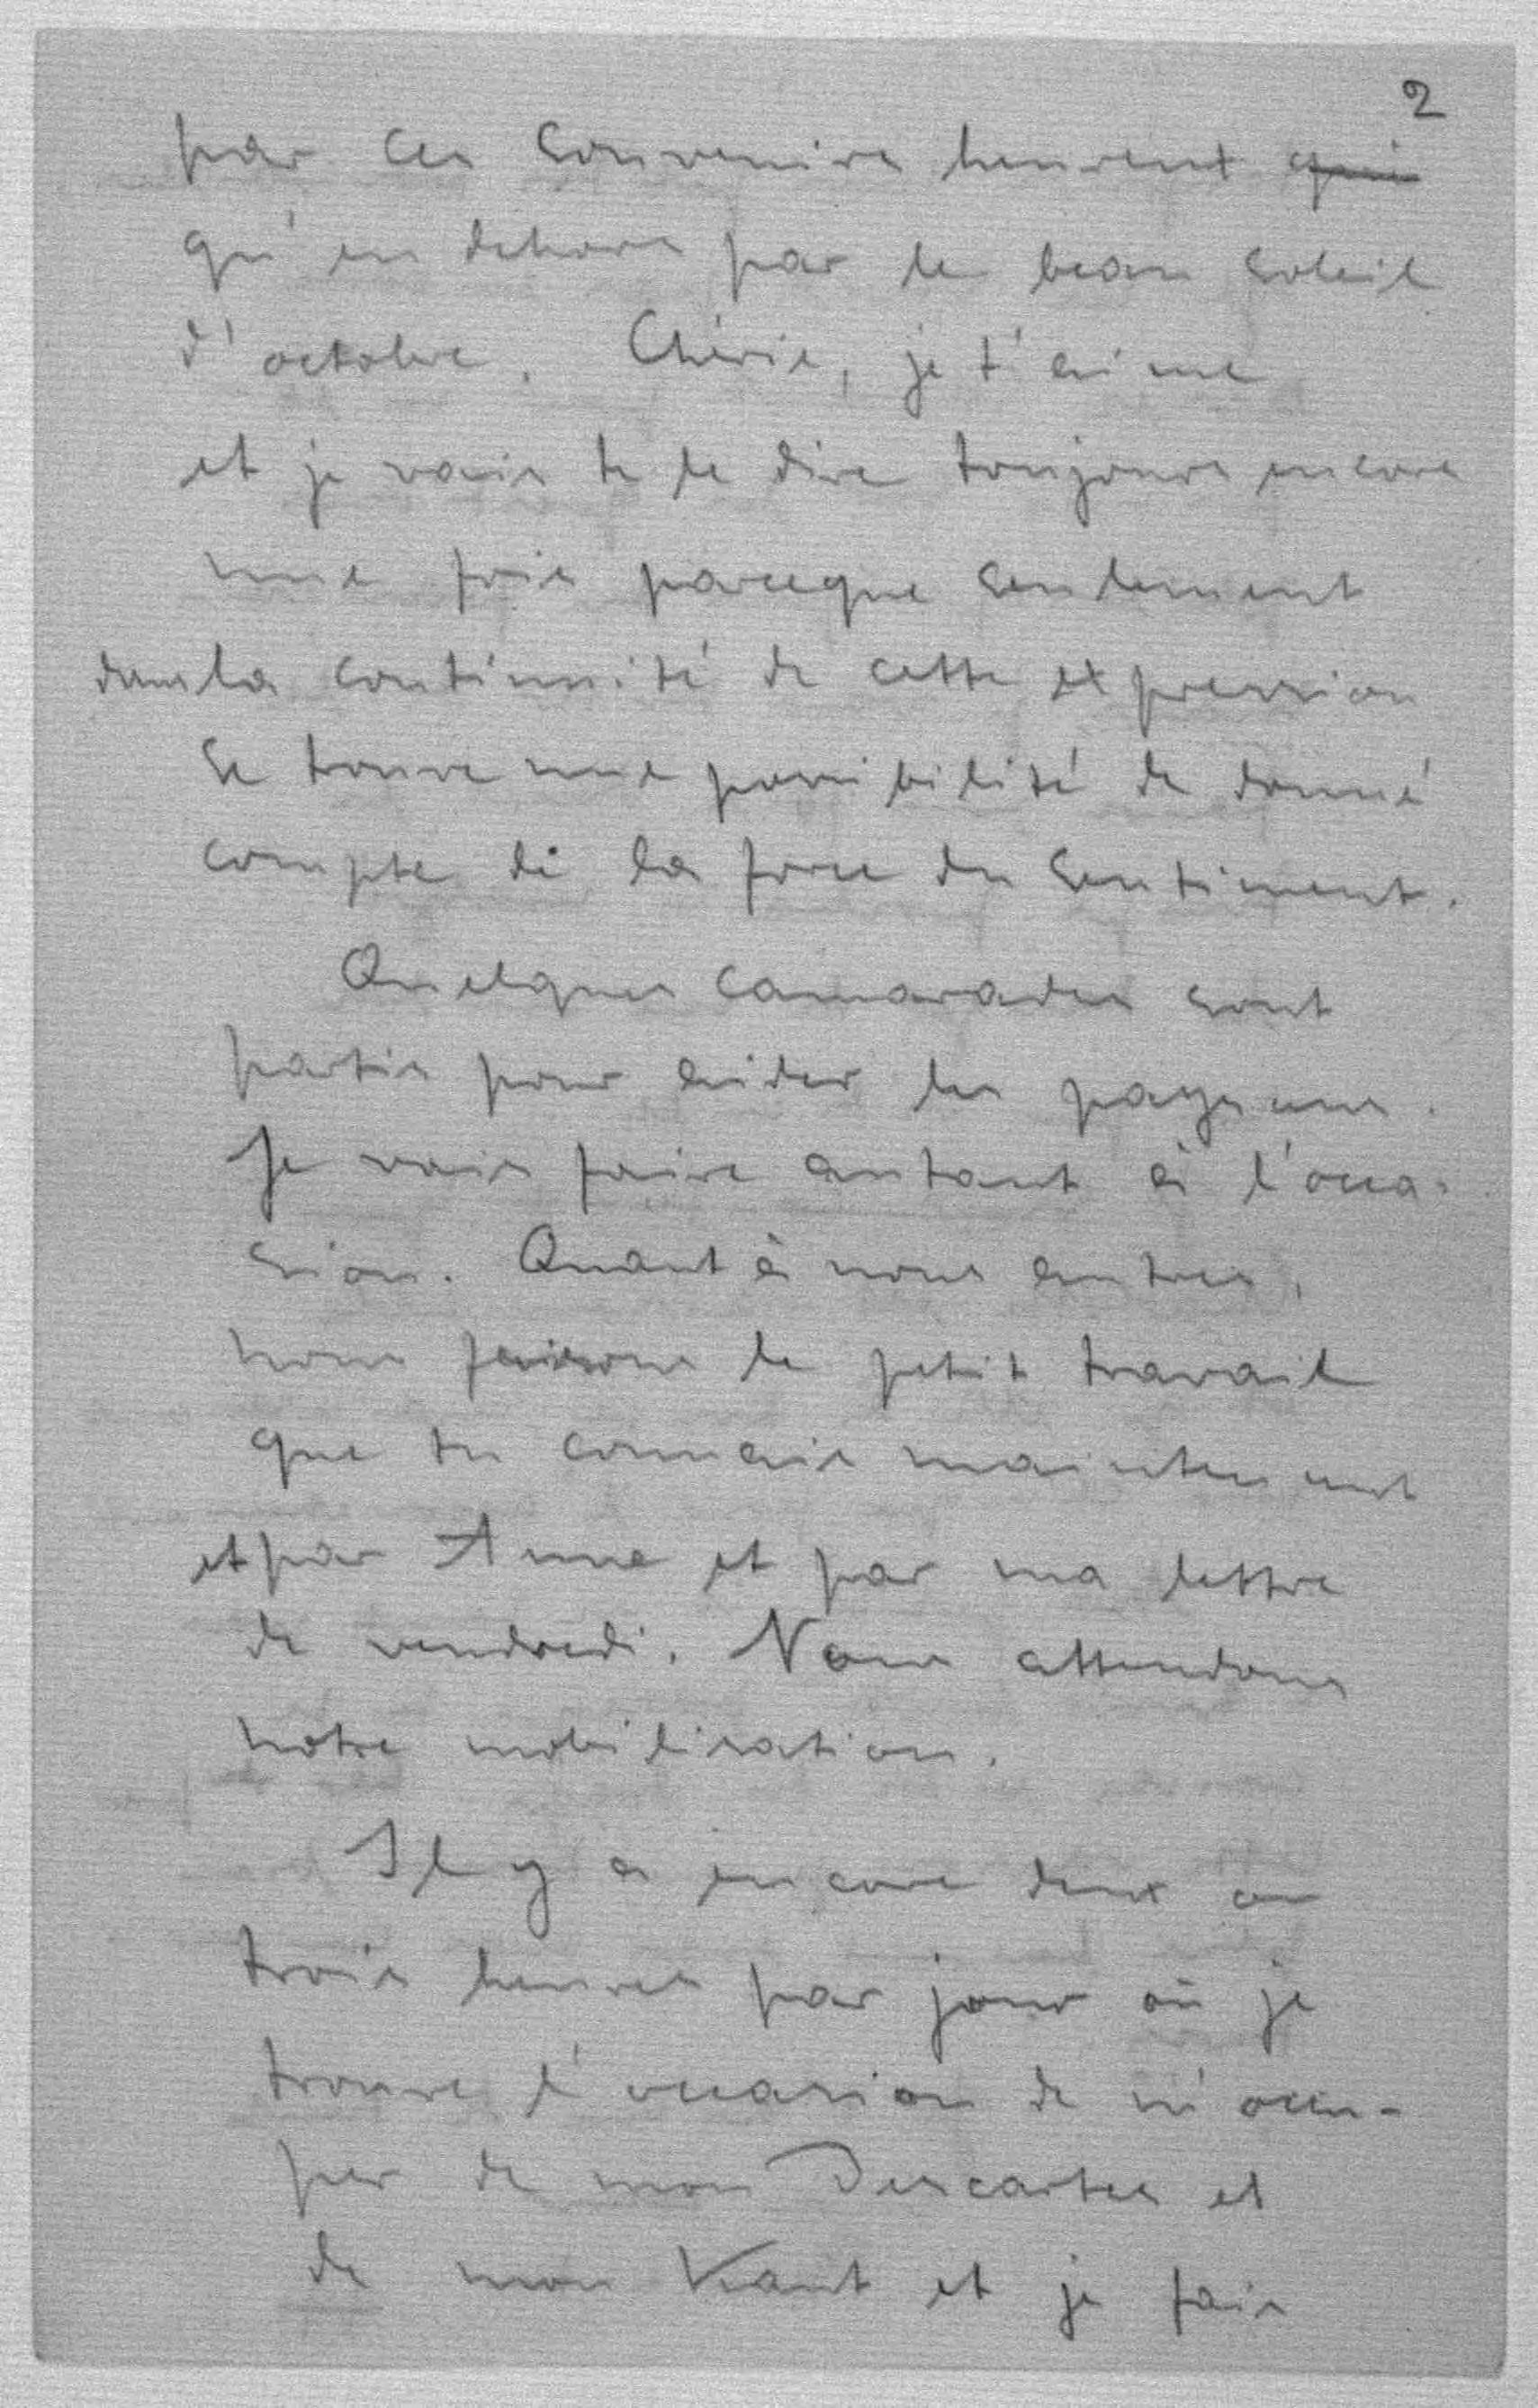 2
par ces souvenirs heureux ~~qui~~
qu'en dehors par le beau soleil
d'octobre. Chérie, je t'aime
et je vais te le dire toujours encore
une fois parceque seulement
dans la continuité de cette expression
se trouve une possibilité de donné
compte de la force du sentiment.
Quelques camarades sont
partis pour aider les paysans.
Je vais faire autant à l'occa-
sion. Quant à nous autres,
nous faisons le petit travail
que tu connais maintenant
et par Anne et par ma lettre
de vendredi. Nous attendons
notre mobilisation.
Il y a encore deux ou
trois heures par jour où je
trouve l'occasion de m'occu-
per de mon Descartes et
de mon Kant et je fais